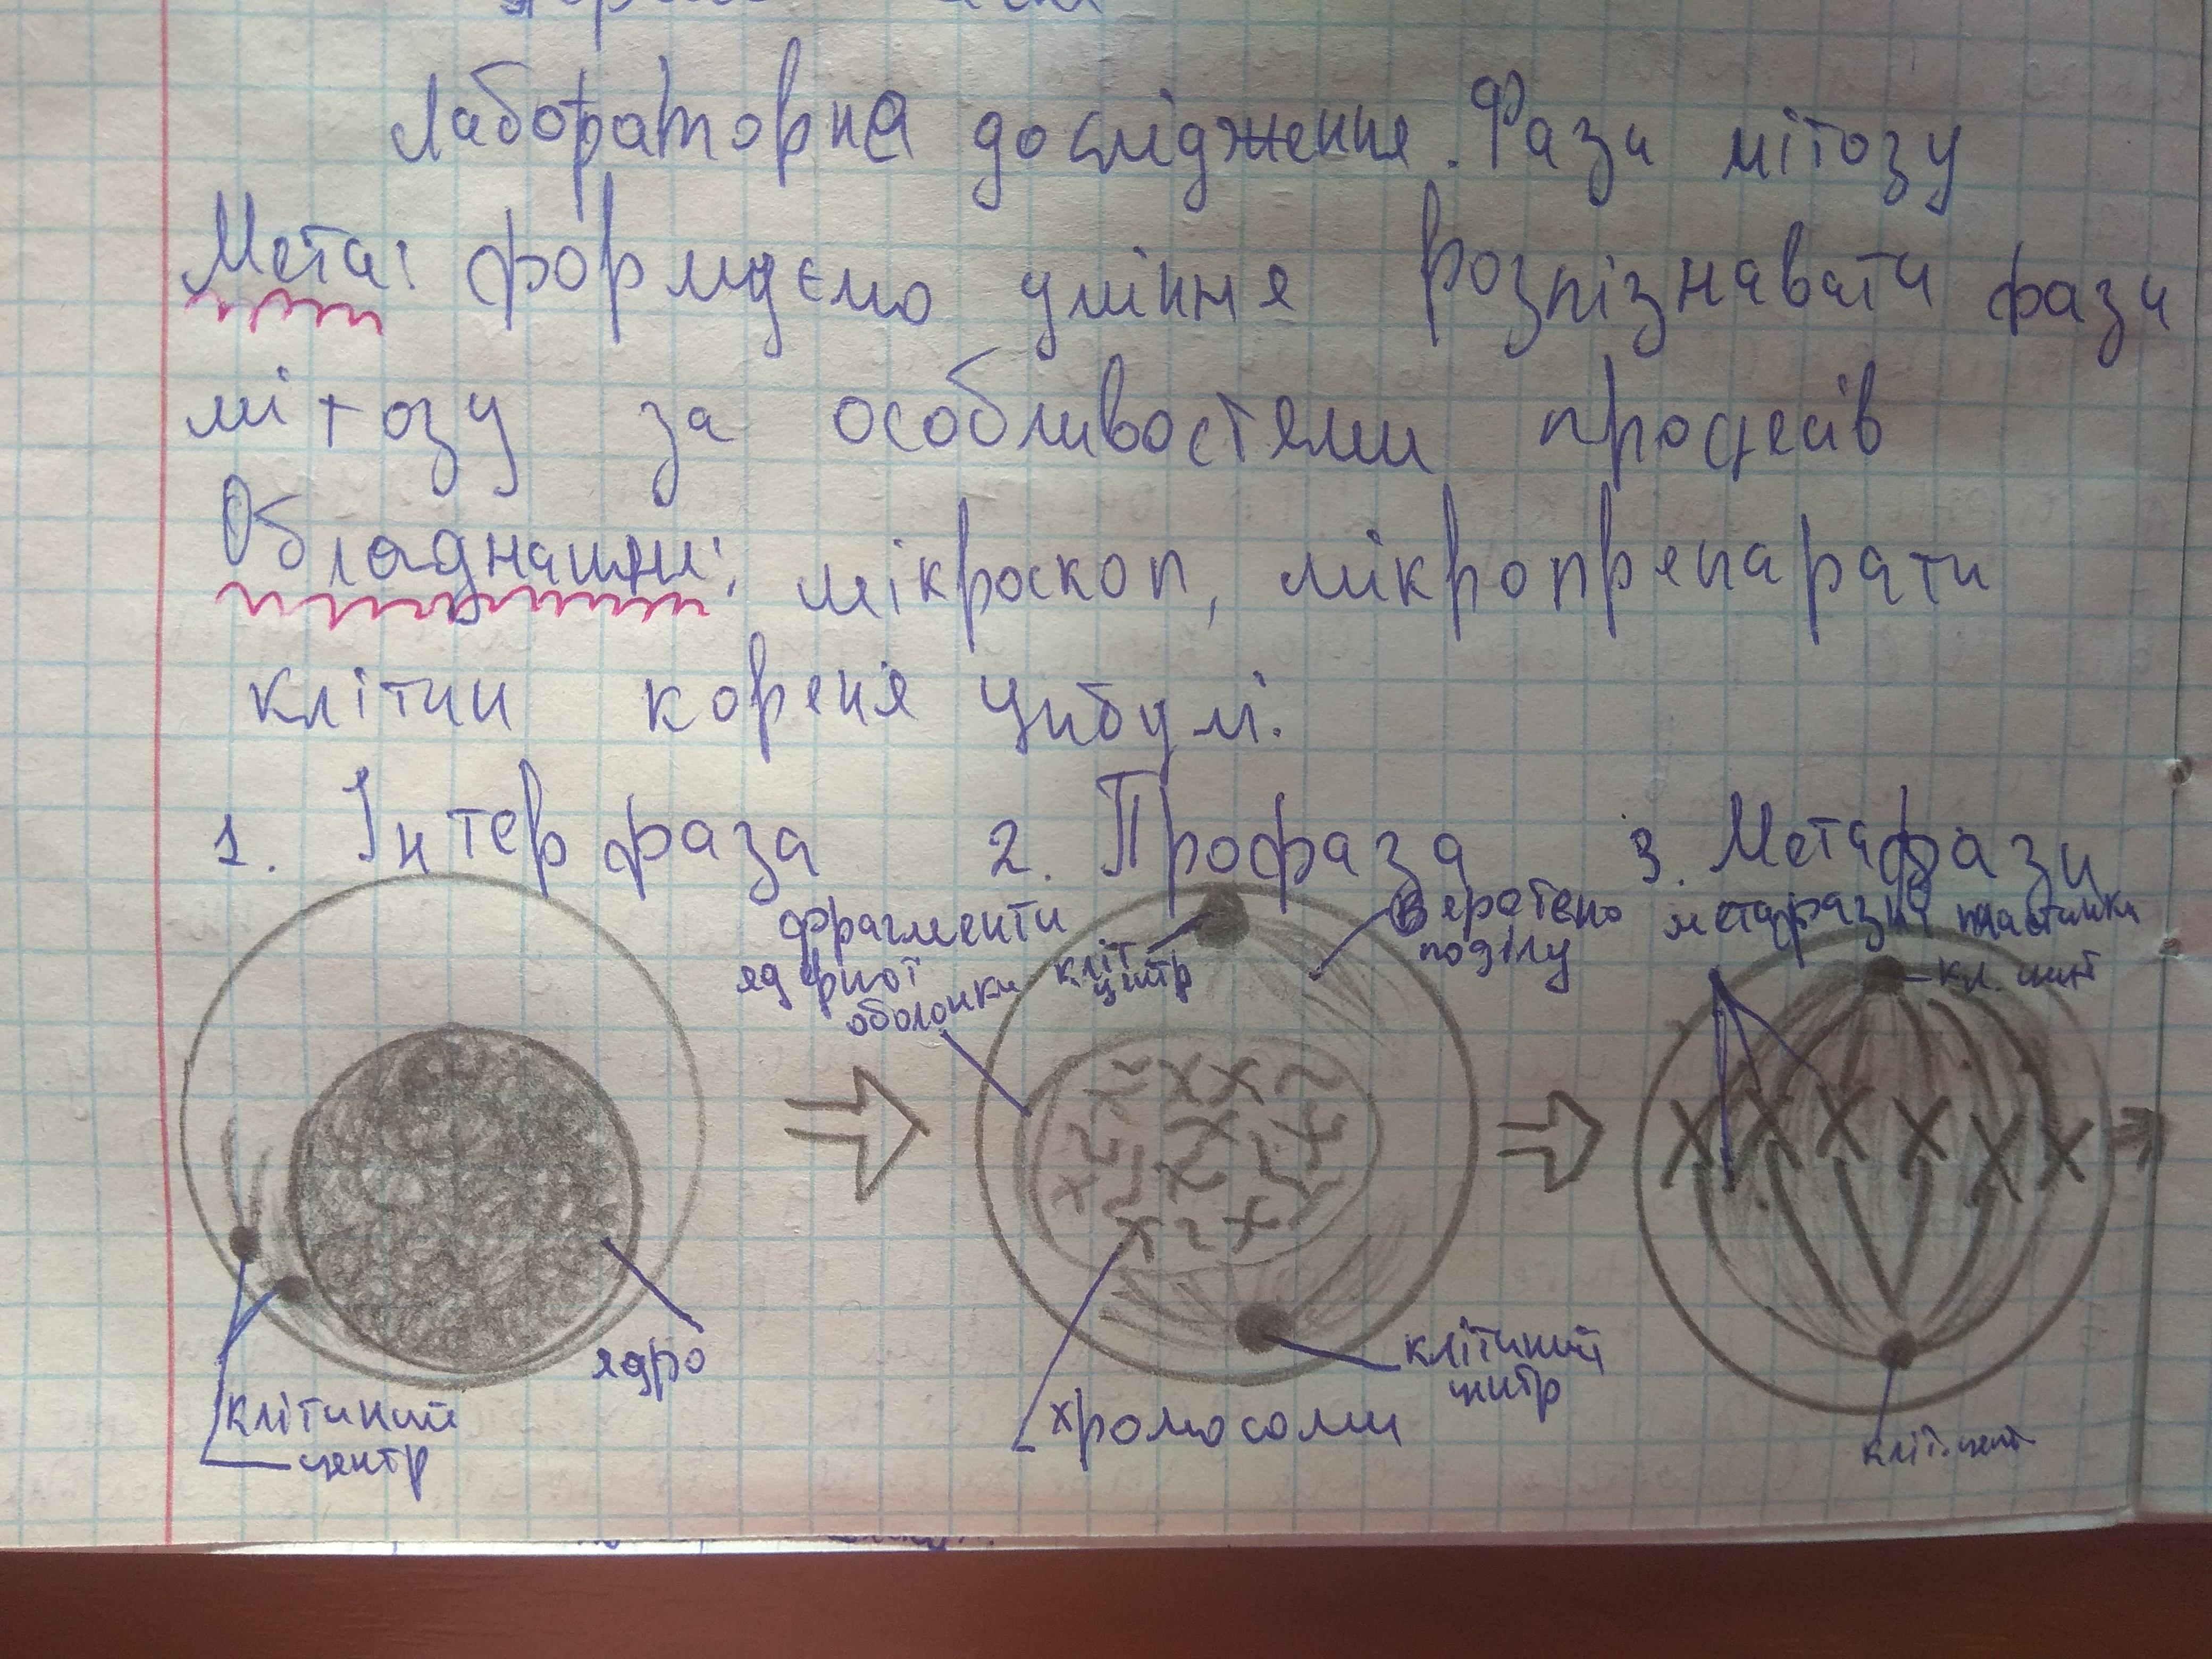 Лабораторна дослідження. Фази мітозу
Мета: формуємо уміння розпізнавати фази
мітозу за особливостями процесів
Обладнання: мікроскоп, мікропрепарати
клітин кореня цибулі.
1. Інтерфаза 2. Профаза 3. Метафази
фрагменти
ядерної
оболонки
кліт
центр
Веретено
поділу
метафазні пластинки
кл. цент
ядро
клітиний
центр
хромосоми
клітиний
центр
кліт. цент